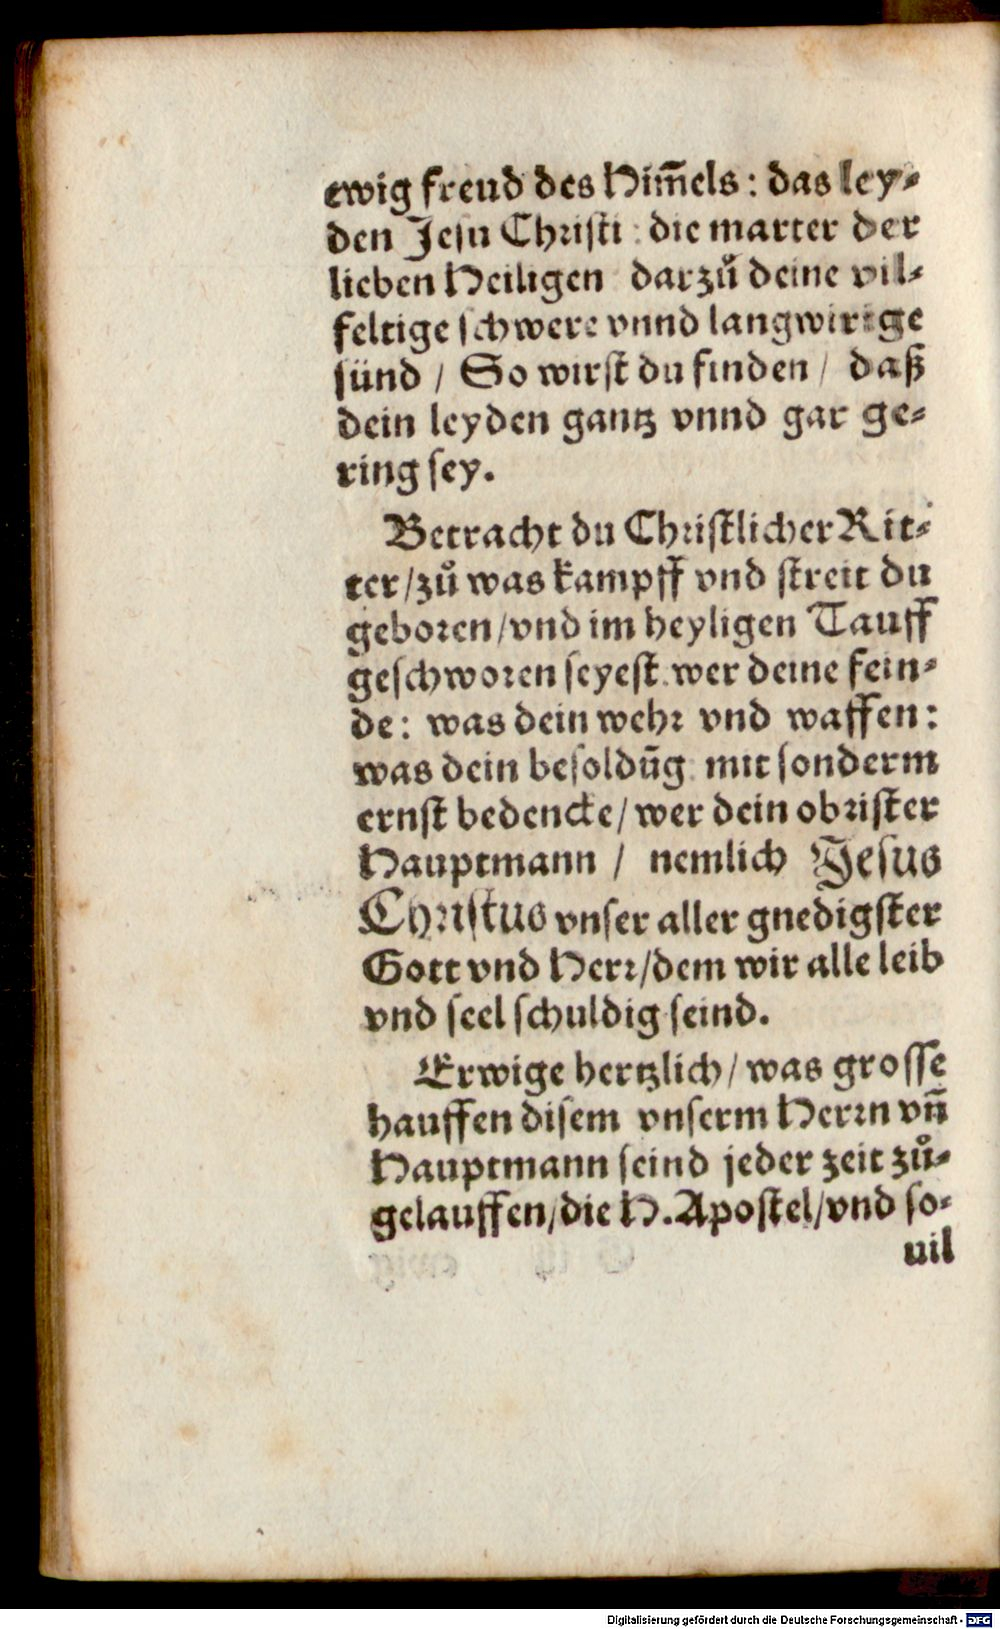 ewig freud des Him̅els : das ley⸗
den Jesu Christi : die marter der
lieben Heiligen darzuͦ deine vil⸗
feltige schwere vnnd langwirige
sünd / So wirst du finden / daß
dein leyden gantz vnnd gar ge⸗
ring sey.
Betracht du Christlicher Rit⸗
ter / zuͦ was kampff vnd streit du
geboren / vnd im heyligen Tauff
geschworen seyest. wer deine fein⸗
de : was dein wehr vnd waffen :
was dein besoldūg. mit sonderm
ernst bedencke / wer dein obrister
Hauptmann / nemlich Jesus
Christus vnser aller gnedigster
Gott vnd Herr / dem wir alle leib
vnd seel schuldig seind.
Erwige hertzlich / was grosse
hauffen disem vnserm Herrn vn̄
Hauptmann seind jeder zeit zuͦ⸗
gelauffen / die H. Apostel / vnd so⸗
uil
Digitalisierung gefördert durch die Deutsche Forschungsgemeinschaft - DFG